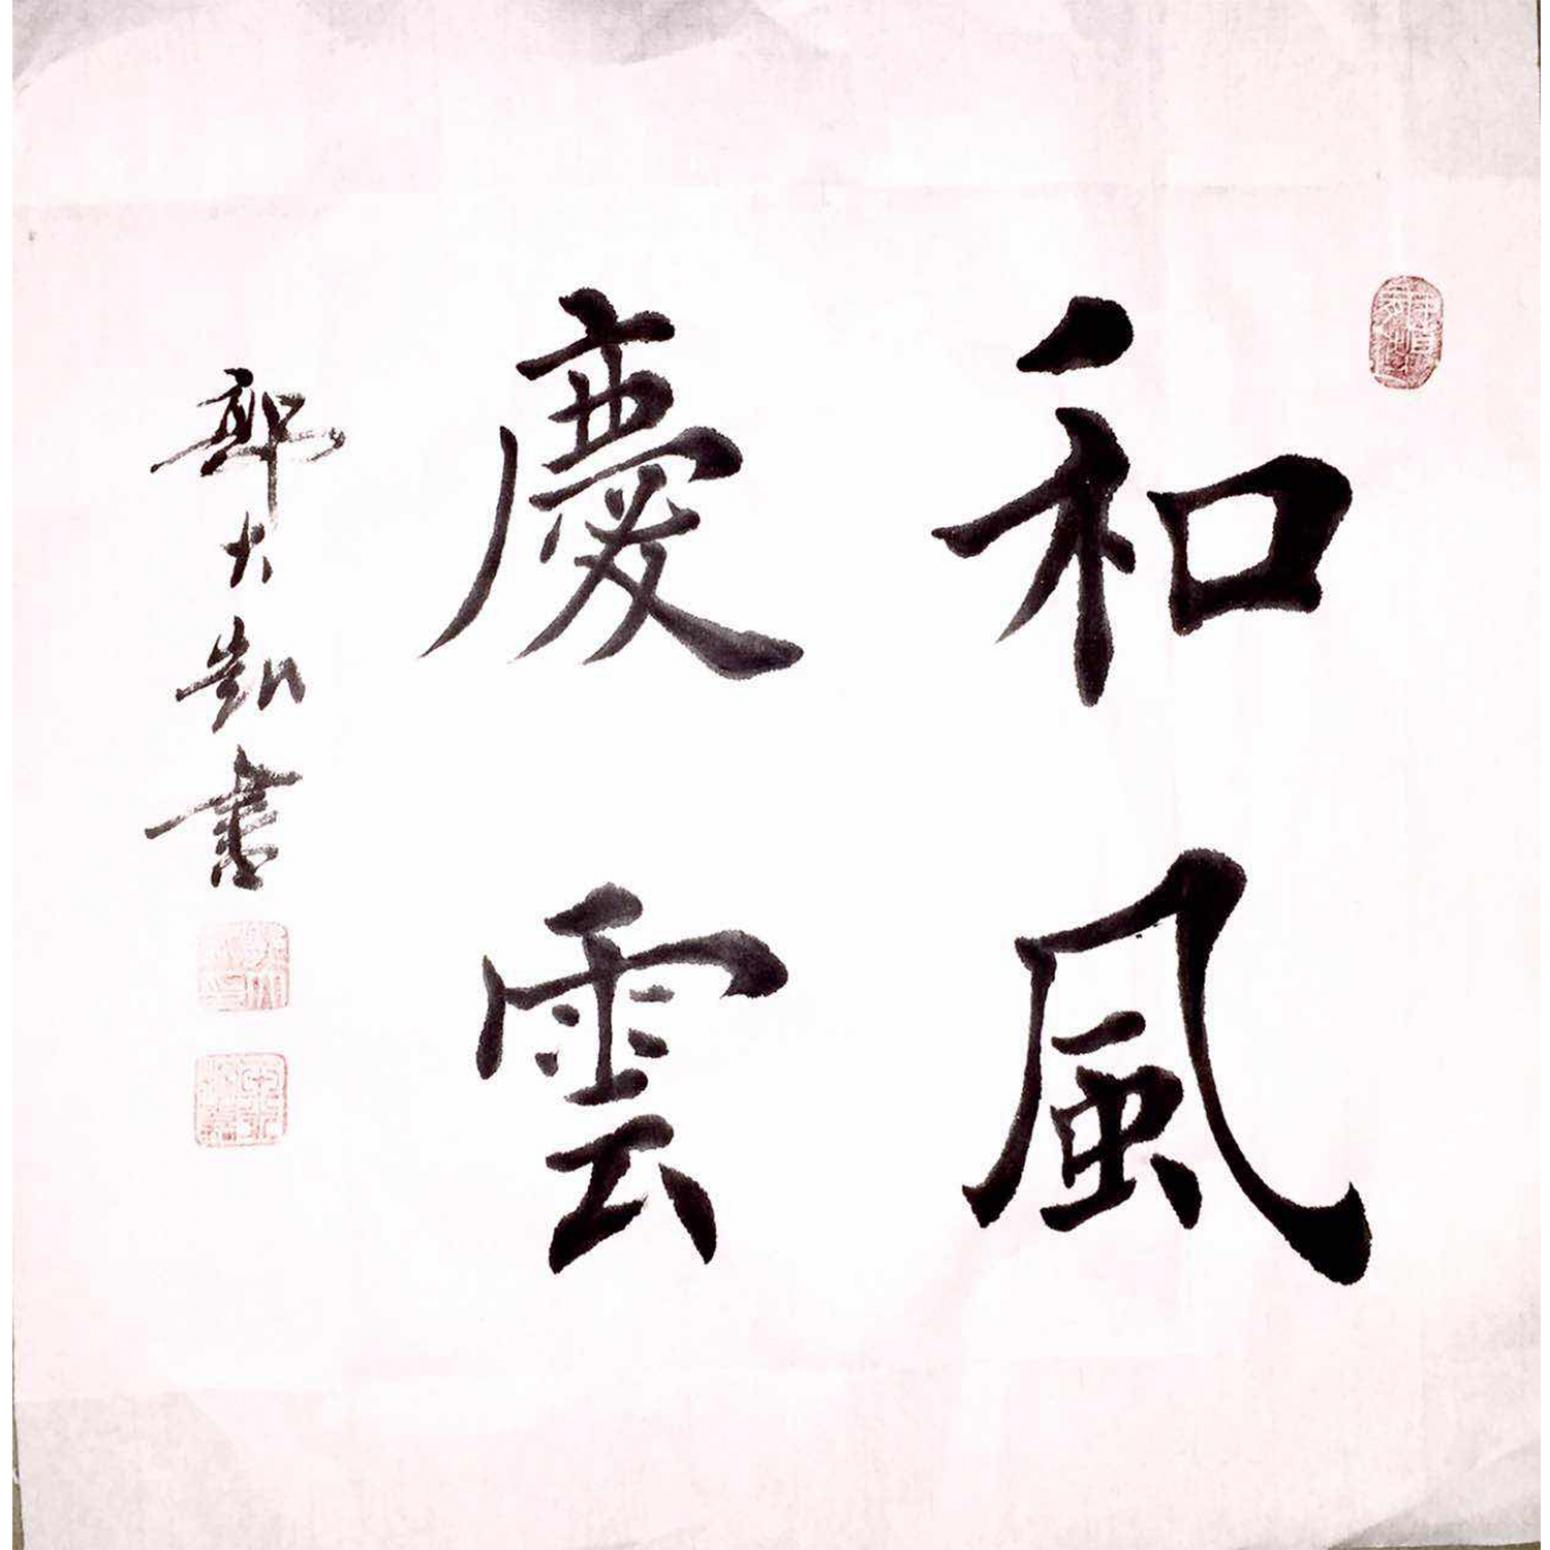 和風
慶雲
郭大凱書